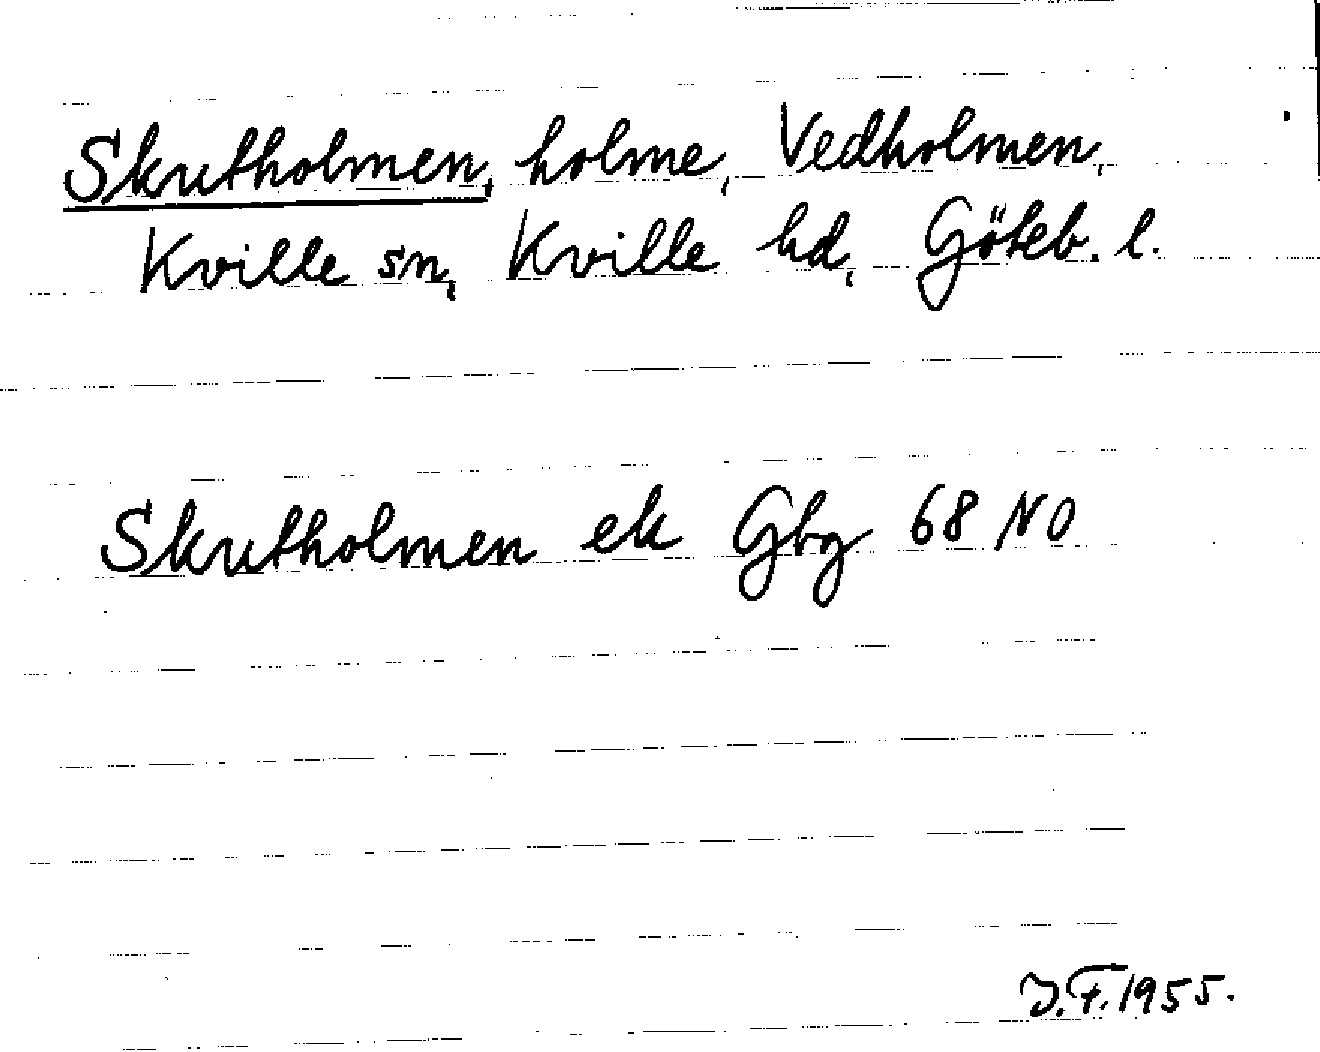 Skutholmen, holme, Vedholmen,
Kville sn, Kville hd, Göteb. l.
Skutholmen ek Gbg 68 NO
J.F. 1955.